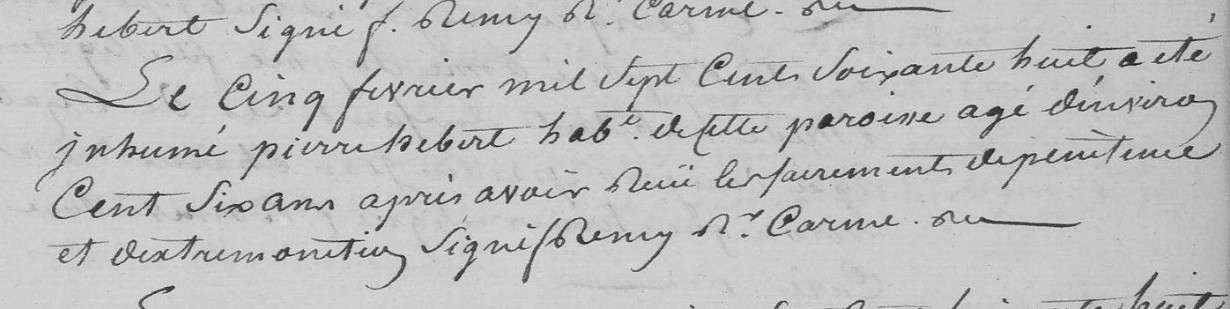 hebert Signé f. Remy R.r Carme.
Le Cinq fevrier mil Sept Cents Soixante huit a eté
jnhumé pierre hebert hab.t de cette paroisse agé d'environ
Cent Six ans apres avoir Reçû les sacrements de penitence
et d'extremonction Signé f Remy R.r Carme.
huit